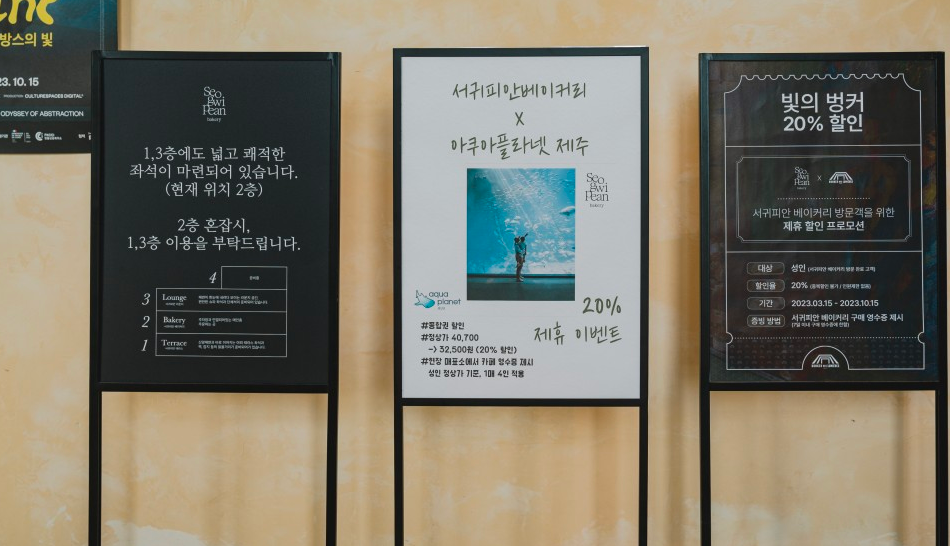 방스의 빛
23. 10. 15
PRODUCTION CULTURESPACES DIGITAL®
ODYSSEY OF ABSTRACTION
Seo
gwi
Pean
bakery
1,3층에도 넓고 쾌적한
좌석이 마련되어 있습니다.
(현재 위치 2층)
2층 혼잡시,
1,3층 이용을 부탁드립니다.
4
3 Lounge
2 Bakery
1 Terrace
서귀피안베이커리
X
아쿠아플라넷 제주
Seo
gwi
Pean
bakery
aqua
planet
20%
제휴 이벤트
#종합권 할인
#정상가 40,700
-> 32,500원 (20% 할인)
#현장 매표소에서 카페 영수증 제시
성인 정상가 기준, 1매 4인 적용
빛의 벙커
20% 할인
Seo
gwi
Pean
bakery
X
서귀피안 베이커리 방문객을 위한
제휴 할인 프로모션
대상 성인 (서귀피안 베이커리 방문 완료 고객)
할인율 20% (중복할인 불가 / 인원제한 없음)
기간 2023.03.15 - 2023.10.15
증빙 방법 서귀피안 베이커리 구매 영수증 제시
(7일 이내 구매 영수증에 한함)